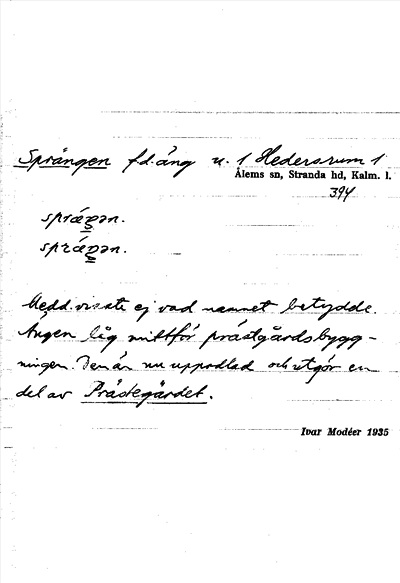 Sprängen f.d. äng u. 1 Hedersrum 1
Ålems sn, Stranda hd, Kalm. l.
394
spräŋən.
spräŋən.
Medd. visste ej vad namnet betydde.
Ängen låg mittför prästgårdsbygg-
ningen. Den är nu uppodlad och utgör en
del av Prästegärdet.
Ivar Modéer 1935